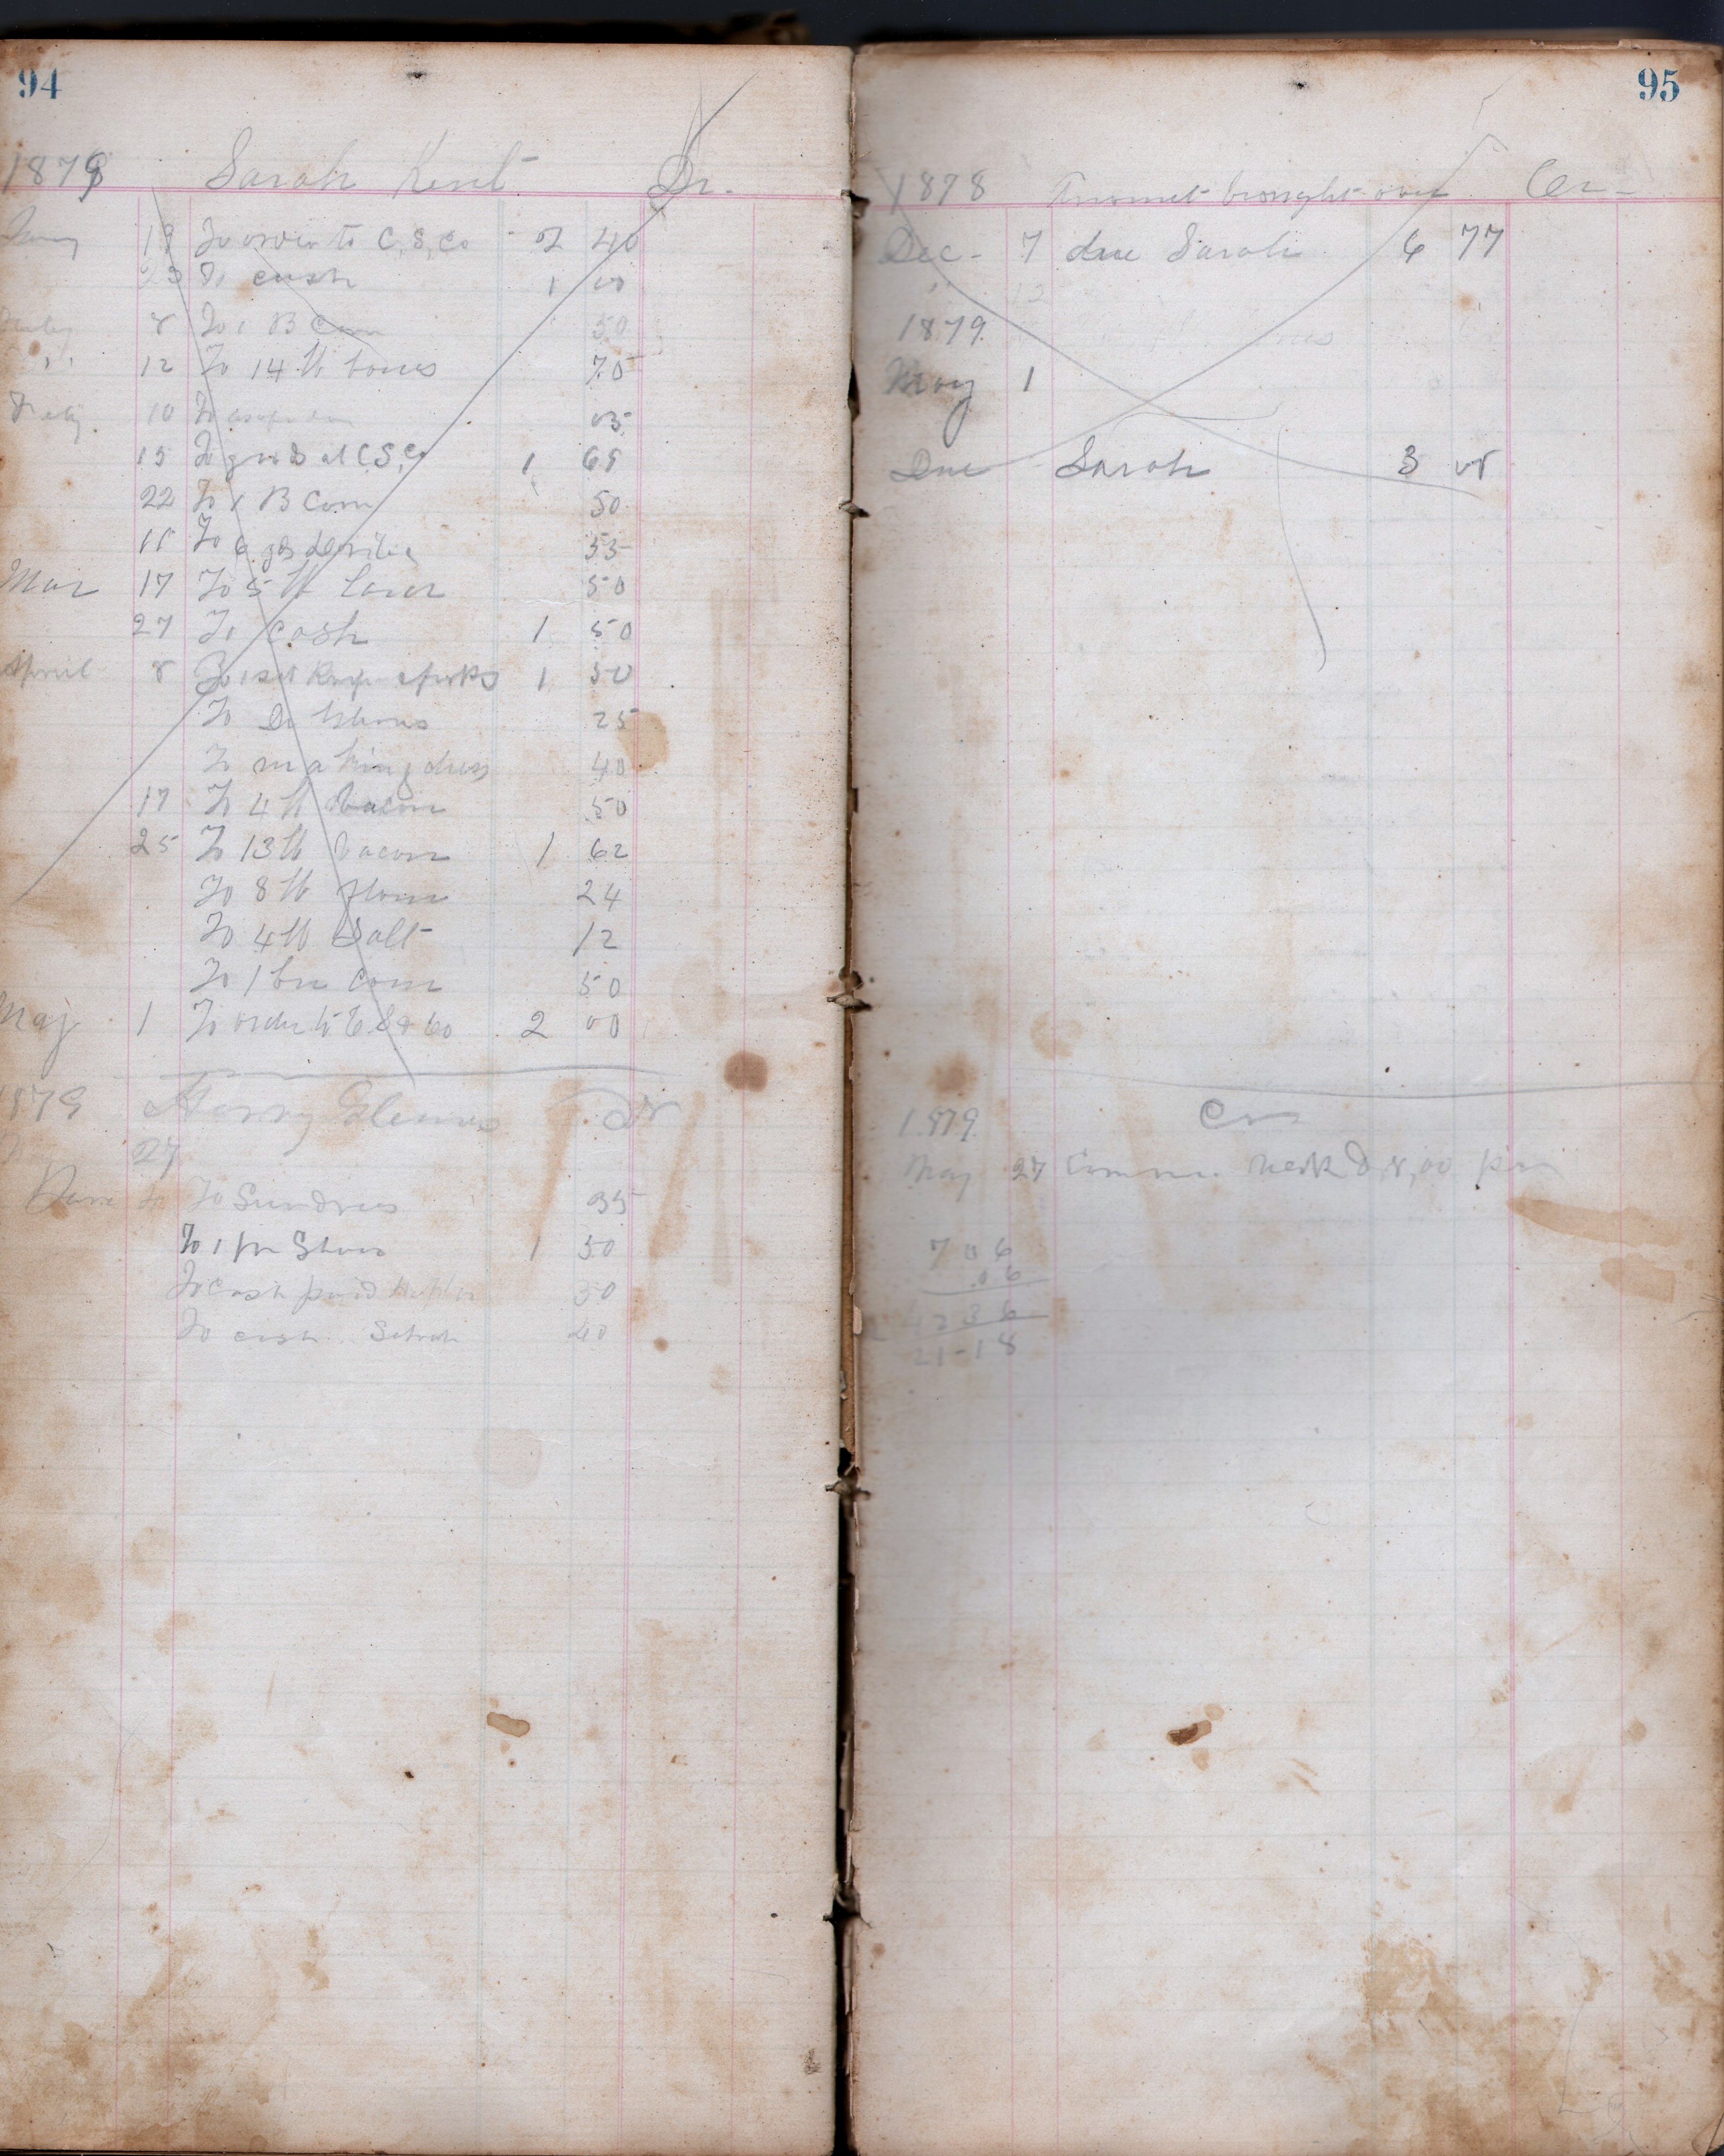 94
1879 Sarah Kent Dr.
Jany 19 To order to C, S, Co 2 40
23 To cash 1 00
Feby 8 To 1 B Corn 50
" 12 To 14 lb bones 70
Feby 10 To 05
15 To goods at C S, Co 1 69
22 To 1 B Corn 50
11 To 6 55
Mar 17 To 5 lb 50
27 To Cash 1 50
April 8 To 1 set Knife & forks 1 50
To 25
To making dress 40
17 To 4 lb bacon 50
25 To 13 lb bacon 1 62
To 8 lb flour 24
To 4 lb Salt 12
To 1 bu corn 50
May 1 To order to C S & Co 2 00
1879 Harry Dr
May 27
To Sundries 35
To 1 pr Shoes 1 50
To Cash paid 50
To cash Sarah 40
95
1878 Amount brought over Cr
Dec - 7 due Sarah 6 77
" 12
1879
May 1
Due Sarah 3 08
1879 Cr
May 27 8,00 per
706
.06
4236
21-18